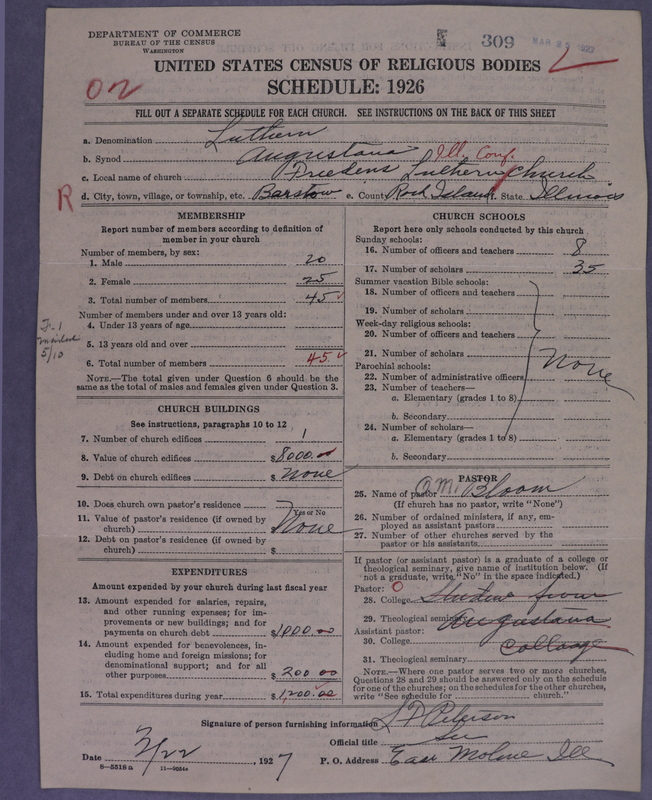 DEPARTMENT OF COMMERCE
BUREAU OF THE CENSUS
WASHINGTON
309
UNITED STATES CENSUS OF RELIGIOUS BODIES
SCHEDULE: 1926
FILL OUT A SEPARATE SCHEDULE FOR EACH CHURCH. SEE INSTRUCTIONS ON THE BACK OF THIS SHEET
a. Denomination Luthern
b. Synod Augustana Ill. Conf.
c. Local name of church Lutheran Church
R d. City, town, village, or township, etc. Barstow e. County Rock Island f. State Illinois
MEMBERSHIP
Report number of members according to definition of
member in your church
Number of members, by sex:
1. Male 20
2. Female 25
3. Total number of members 45
Number of members under and over 13 years old:
4. Under 13 years of age
5. 13 years old and over
6. Total number of members 45
NOTE.—The total given under Question 6 should be the
same as the total of males and females given under Question 3.
CHURCH BUILDINGS
See instructions, paragraphs 10 to 12
7. Number of church edifices 1
8. Value of church edifices $8000.00
9. Debt on church edifices $ None
10. Does church own pastor's residence
Yes or No
11. Value of pastor's residence (if owned by
church) None
12. Debt on pastor's residence (if owned by
church) $
EXPENDITURES
Amount expended by your church during last fiscal year
13. Amount expended for salaries, repairs,
and other running expenses; for im-
provements or new buildings; and for
payments on church debt $1000.00
14. Amount expended for benevolences, in-
cluding home and foreign missions; for
denominational support; and for all
other purposes $ 200 00
15. Total expenditures during year $1,200.00
CHURCH SCHOOLS
Report here only schools conducted by this church
Sunday schools:
16. Number of officers and teachers 8
17. Number of scholars 35
Summer vacation Bible schools:
18. Number of officers and teachers
19. Number of scholars
Week-day religious schools:
20. Number of officers and teachers
21. Number of scholars
None
Parochial schools:
22. Number of administrative officers
23. Number of teachers—
a. Elementary (grades 1 to 8)
b. Secondary
24. Number of scholars—
a. Elementary (grades 1 to 8)
b. Secondary
PASTOR
25. Name of pastor Bloom
(If church has no pastor, write "None")
26. Number of ordained ministers, if any, em-
ployed as assistant pastors
27. Number of other churches served by the
pastor or his assistants
If pastor (or assistant pastor) is a graduate of a college or
theological seminary, give name of institution below. (If
not a graduate, write "No" in the space indicated.)
Pastor: O
28. College Student from
29. Theological seminary Augustana
Assistant pastor:
30. College College
31. Theological seminary
NOTE.—Where one pastor serves two or more churches,
Questions 28 and 29 should be answered only on the schedule
for one of the churches; on the schedules for the other churches,
write "See schedule for church."
Signature of person furnishing information Peterson
Official title
Date 3/22, 1927 P. O. Address East Moline Ill
8—5518 a 11—9034